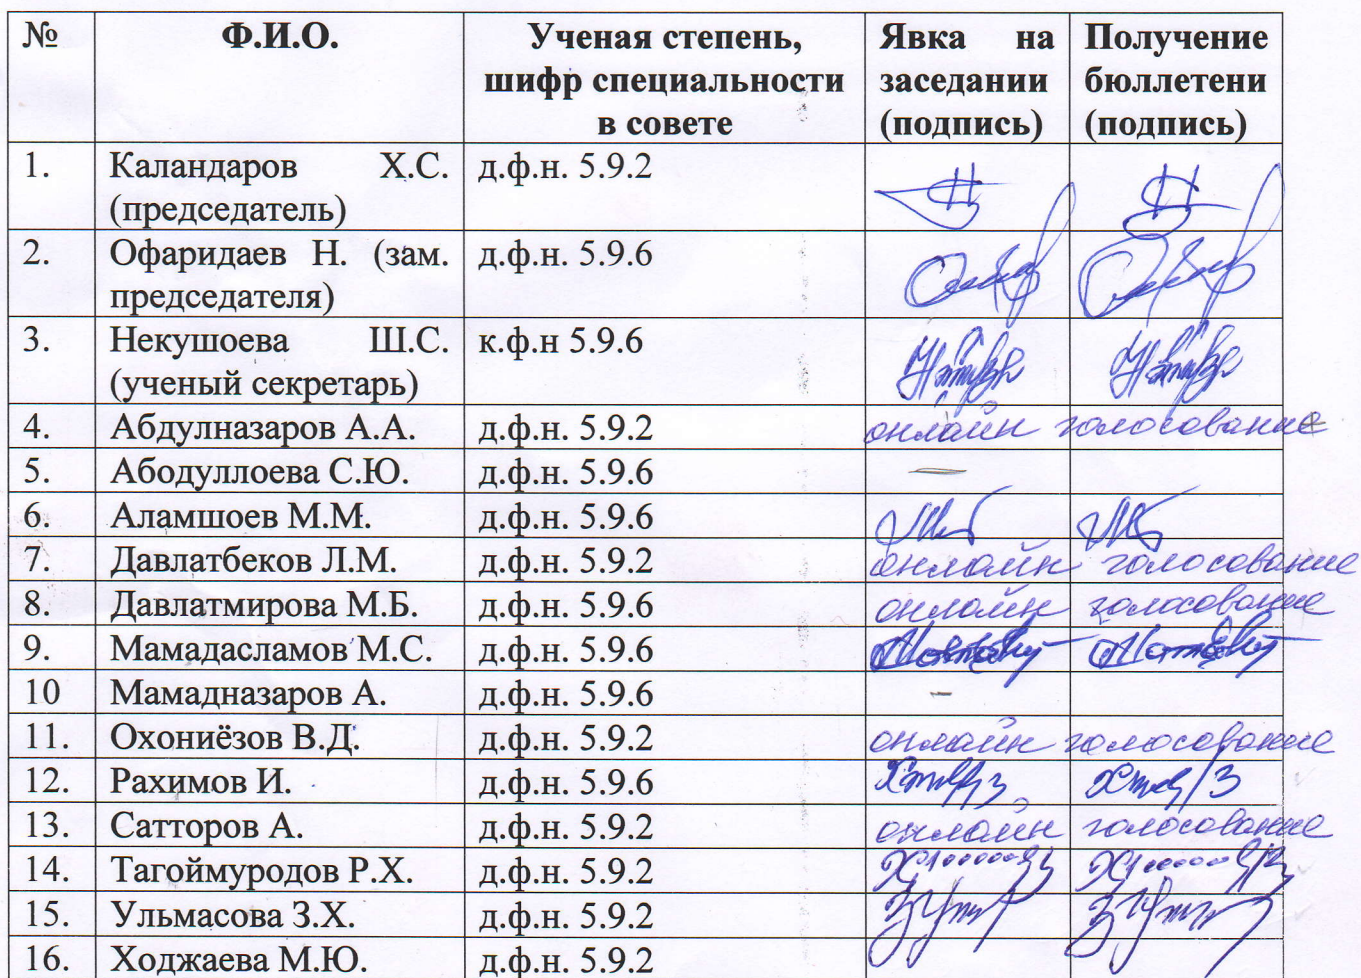 № Ф.И.О. Ученая степень, Явка на Получение
шифр специальности заседании бюллетени
в совете (подпись) (подпись)
1. Каландаров Х.С. д.ф.н. 5.9.2
(председатель)
2. Офаридаев Н. (зам. д.ф.н. 5.9.6
председателя)
3. Некушоева Ш.С. к.ф.н 5.9.6
(ученый секретарь)
4. Абдулназаров А.А. д.ф.н. 5.9.2 онлайн голосование
5. Абодуллоева С.Ю. д.ф.н. 5.9.6 —
6. Аламшоев М.М. д.ф.н. 5.9.6
7. Давлатбеков Л.М. д.ф.н. 5.9.2 онлайн голосование
8. Давлатмирова М.Б. д.ф.н. 5.9.6 онлайн голосование
9. Мамадасламов М.С. д.ф.н. 5.9.6
10 Мамадназаров А. д.ф.н. 5.9.6 —
11. Охониёзов В.Д. д.ф.н. 5.9.2 онлайн голосование
12. Рахимов И. д.ф.н. 5.9.6
13. Сатторов А. д.ф.н. 5.9.2 онлайн голосование
14. Тагоймуродов Р.Х. д.ф.н. 5.9.2
15. Ульмасова З.Х. д.ф.н. 5.9.2
16. Ходжаева М.Ю. д.ф.н. 5.9.2